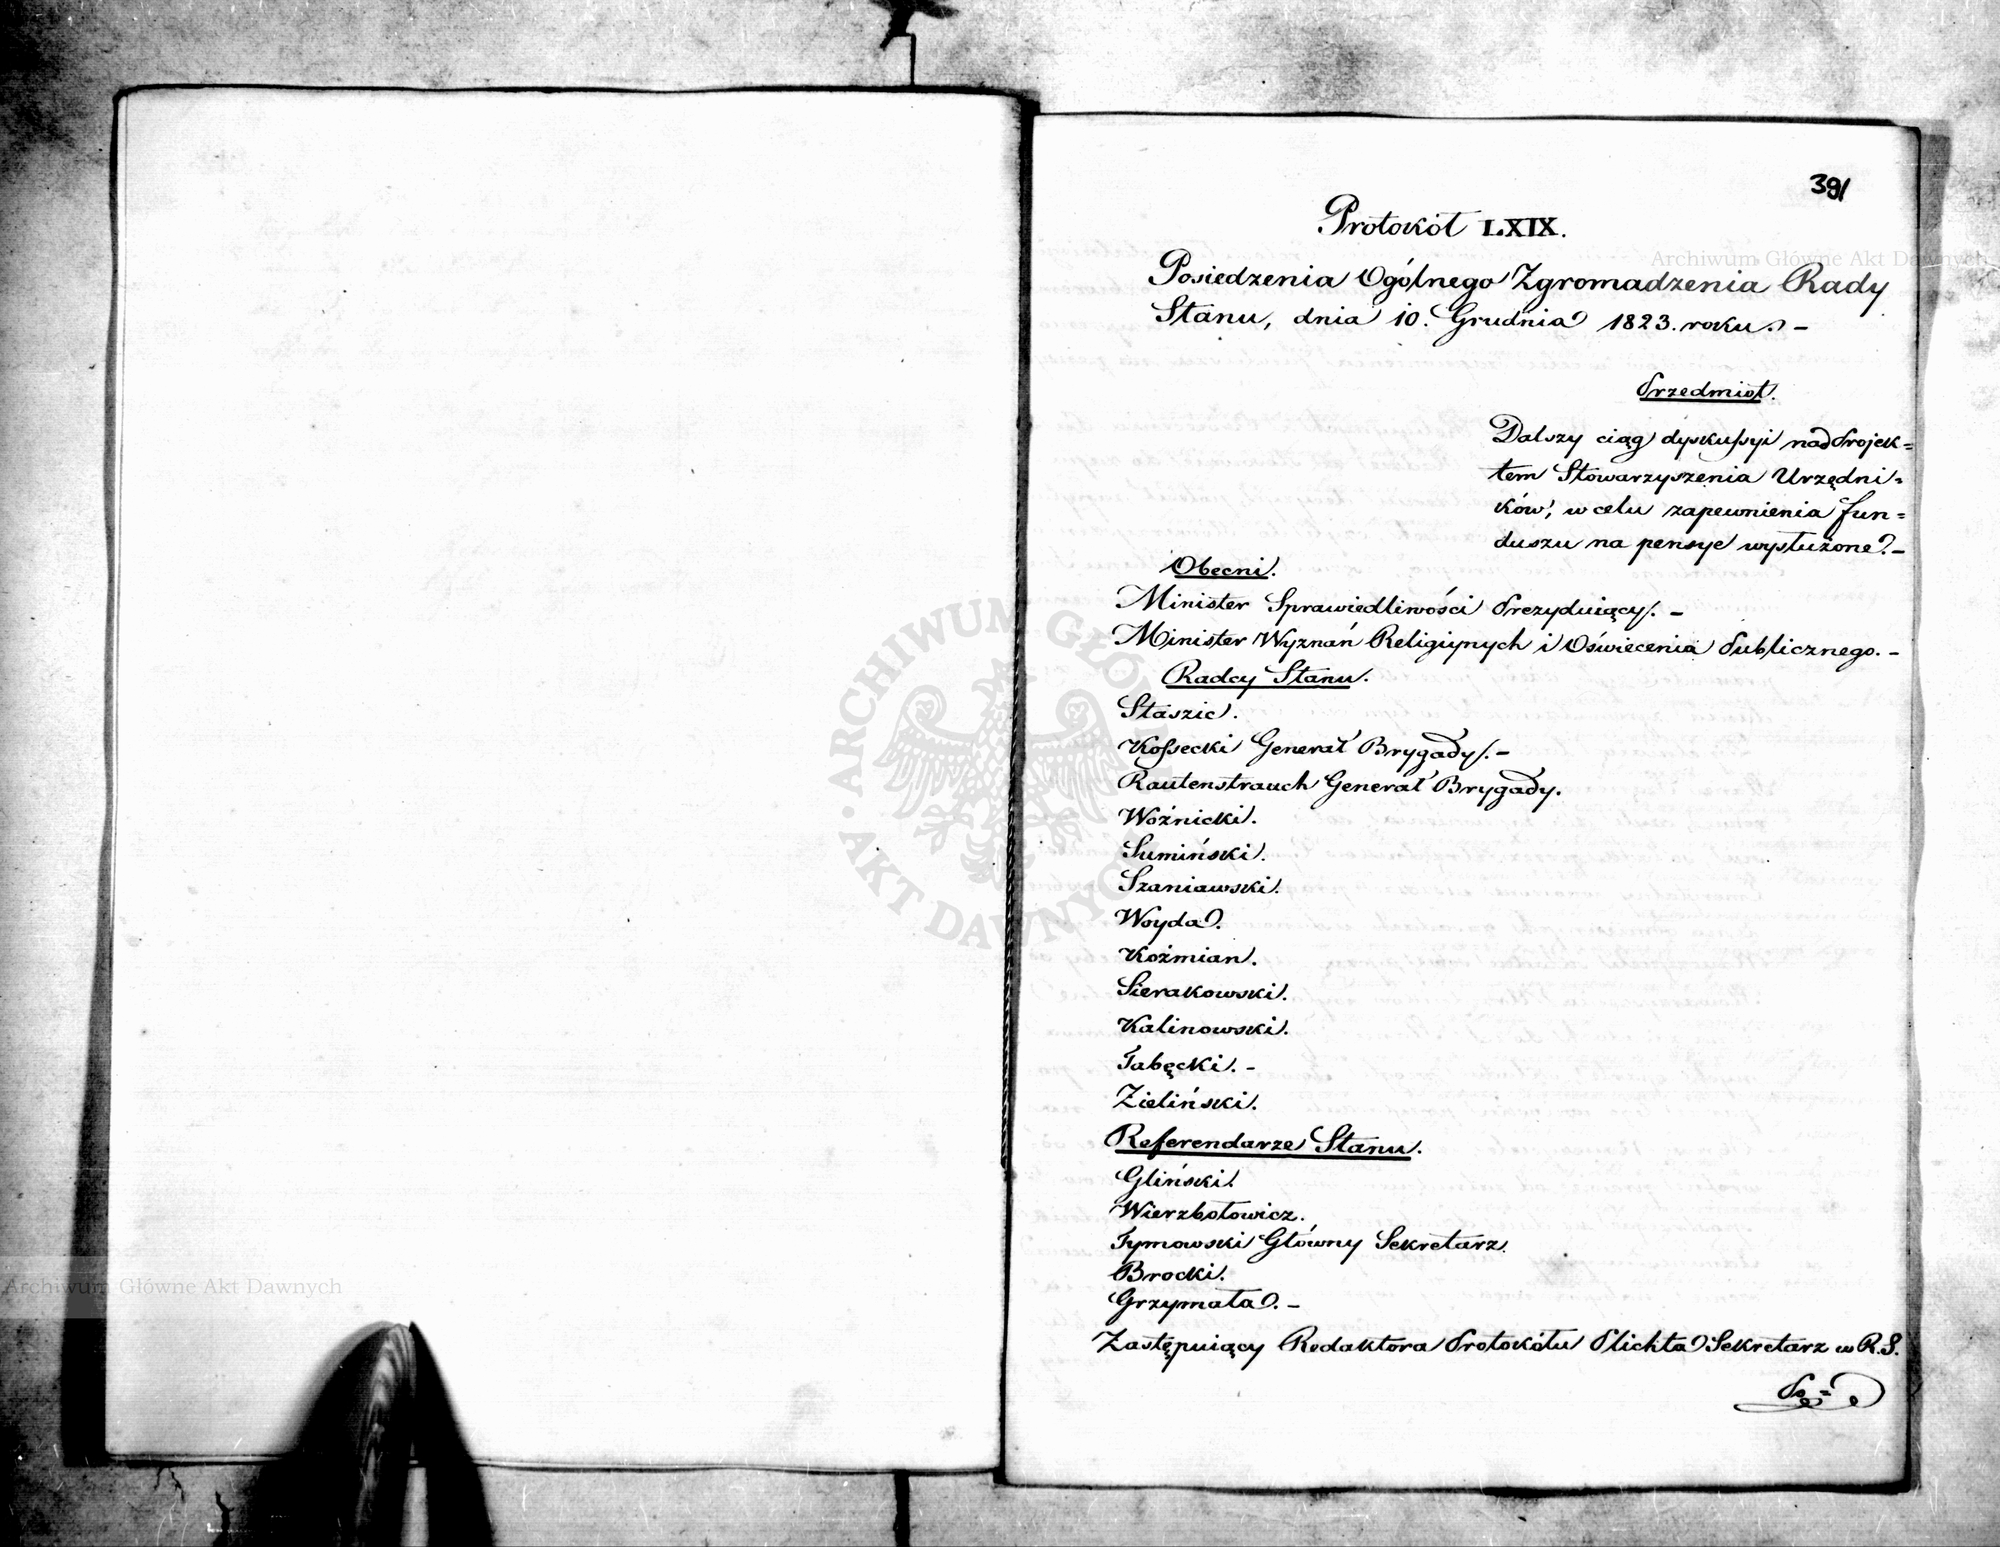 391
Protokół LXIX.
Posiedzenia Ogólnego Zgromadzenia Rady
Stanu, dnia 10. Grudnia 1823. roku. –
Przedmiot.
Dalszy ciąg dyskussyi nad Projek=
tem Stowarzyszenia Urzędni=
ków, w celu zapewnienia fun=
duszu na pensye wysłużone. –
Obecni.
Minister Sprawiedliwości Prezyduiący. –
Minister Wyznań Religiynych i Oświecenia Publicznego. –
Radcy Stanu.
Staszic.
Kossecki Generał Brygady. –
Rautenstrauch Generał Brygady.
Woźnicki.
Sumiński.
Szaniawski.
Woyda.
Koźmian.
Sierakowski.
Kalinowski.
Łabęcki. –
Zieliński.
Referendarze Stanu.
Gliński.
Wierzbołowicz.
Tymowski Główny Sekretarz.
Brocki.
Grzymała. –
Zastępuiący Redaktora Protokółu Plichta Sekretarz w R. S.
Po=
Archiwum Główne Akt Dawnych
Archiwum Główne Akt Dawnych
ARCHIWUM GŁÓWNE AKT DAWNYCH